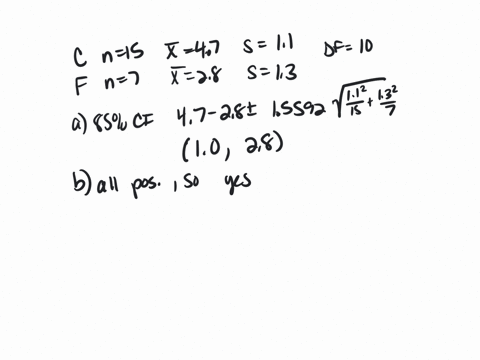 C n=15 x̄=4.7 S = 1.1 DF= 10
F n=7 x̄=2.8 S = 1.3
a) 85% CI 4.7-2.8± 1.5592 √(1.1²/15 + 1.3²/7)
(1.0, 2.8)
b) all pos. , so yes